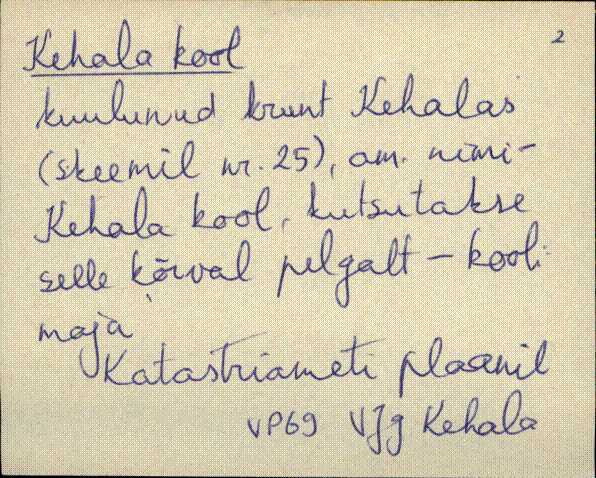 Kehala kool 2
kuulunud krunt Kehalas
(skeemil nr. 25), am. nimi -
Kehala kool, kutsutakse
selle kõrval pelgalt - kooli-
maja
Katastriameti plaanil
VP69 VJg Kehala